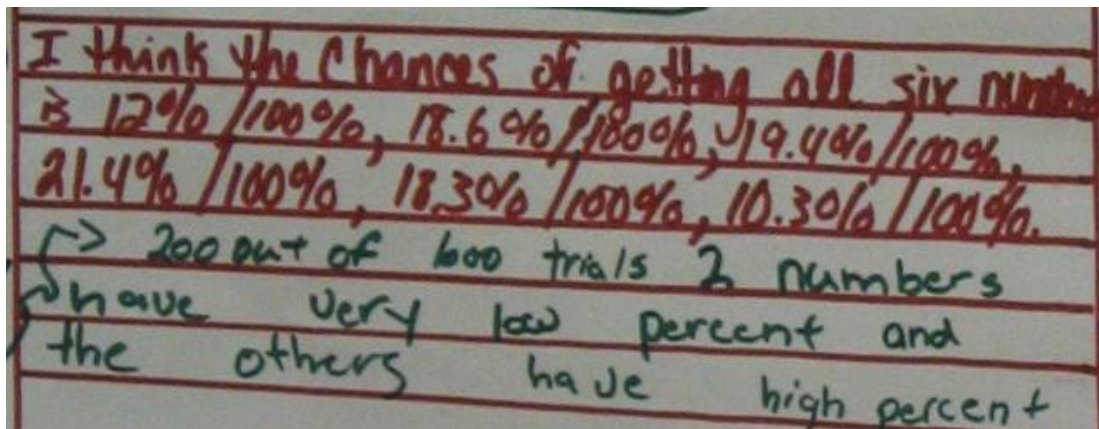 I think the Chances of getting all six number
is 12%/100%, 18.6%/100%, 19.4%/100%,
21.4%/100%, 18.3%/100%, 10.3%/100%.
200 out of 1000 trials 2 numbers
have very low percent and
the others have high percent